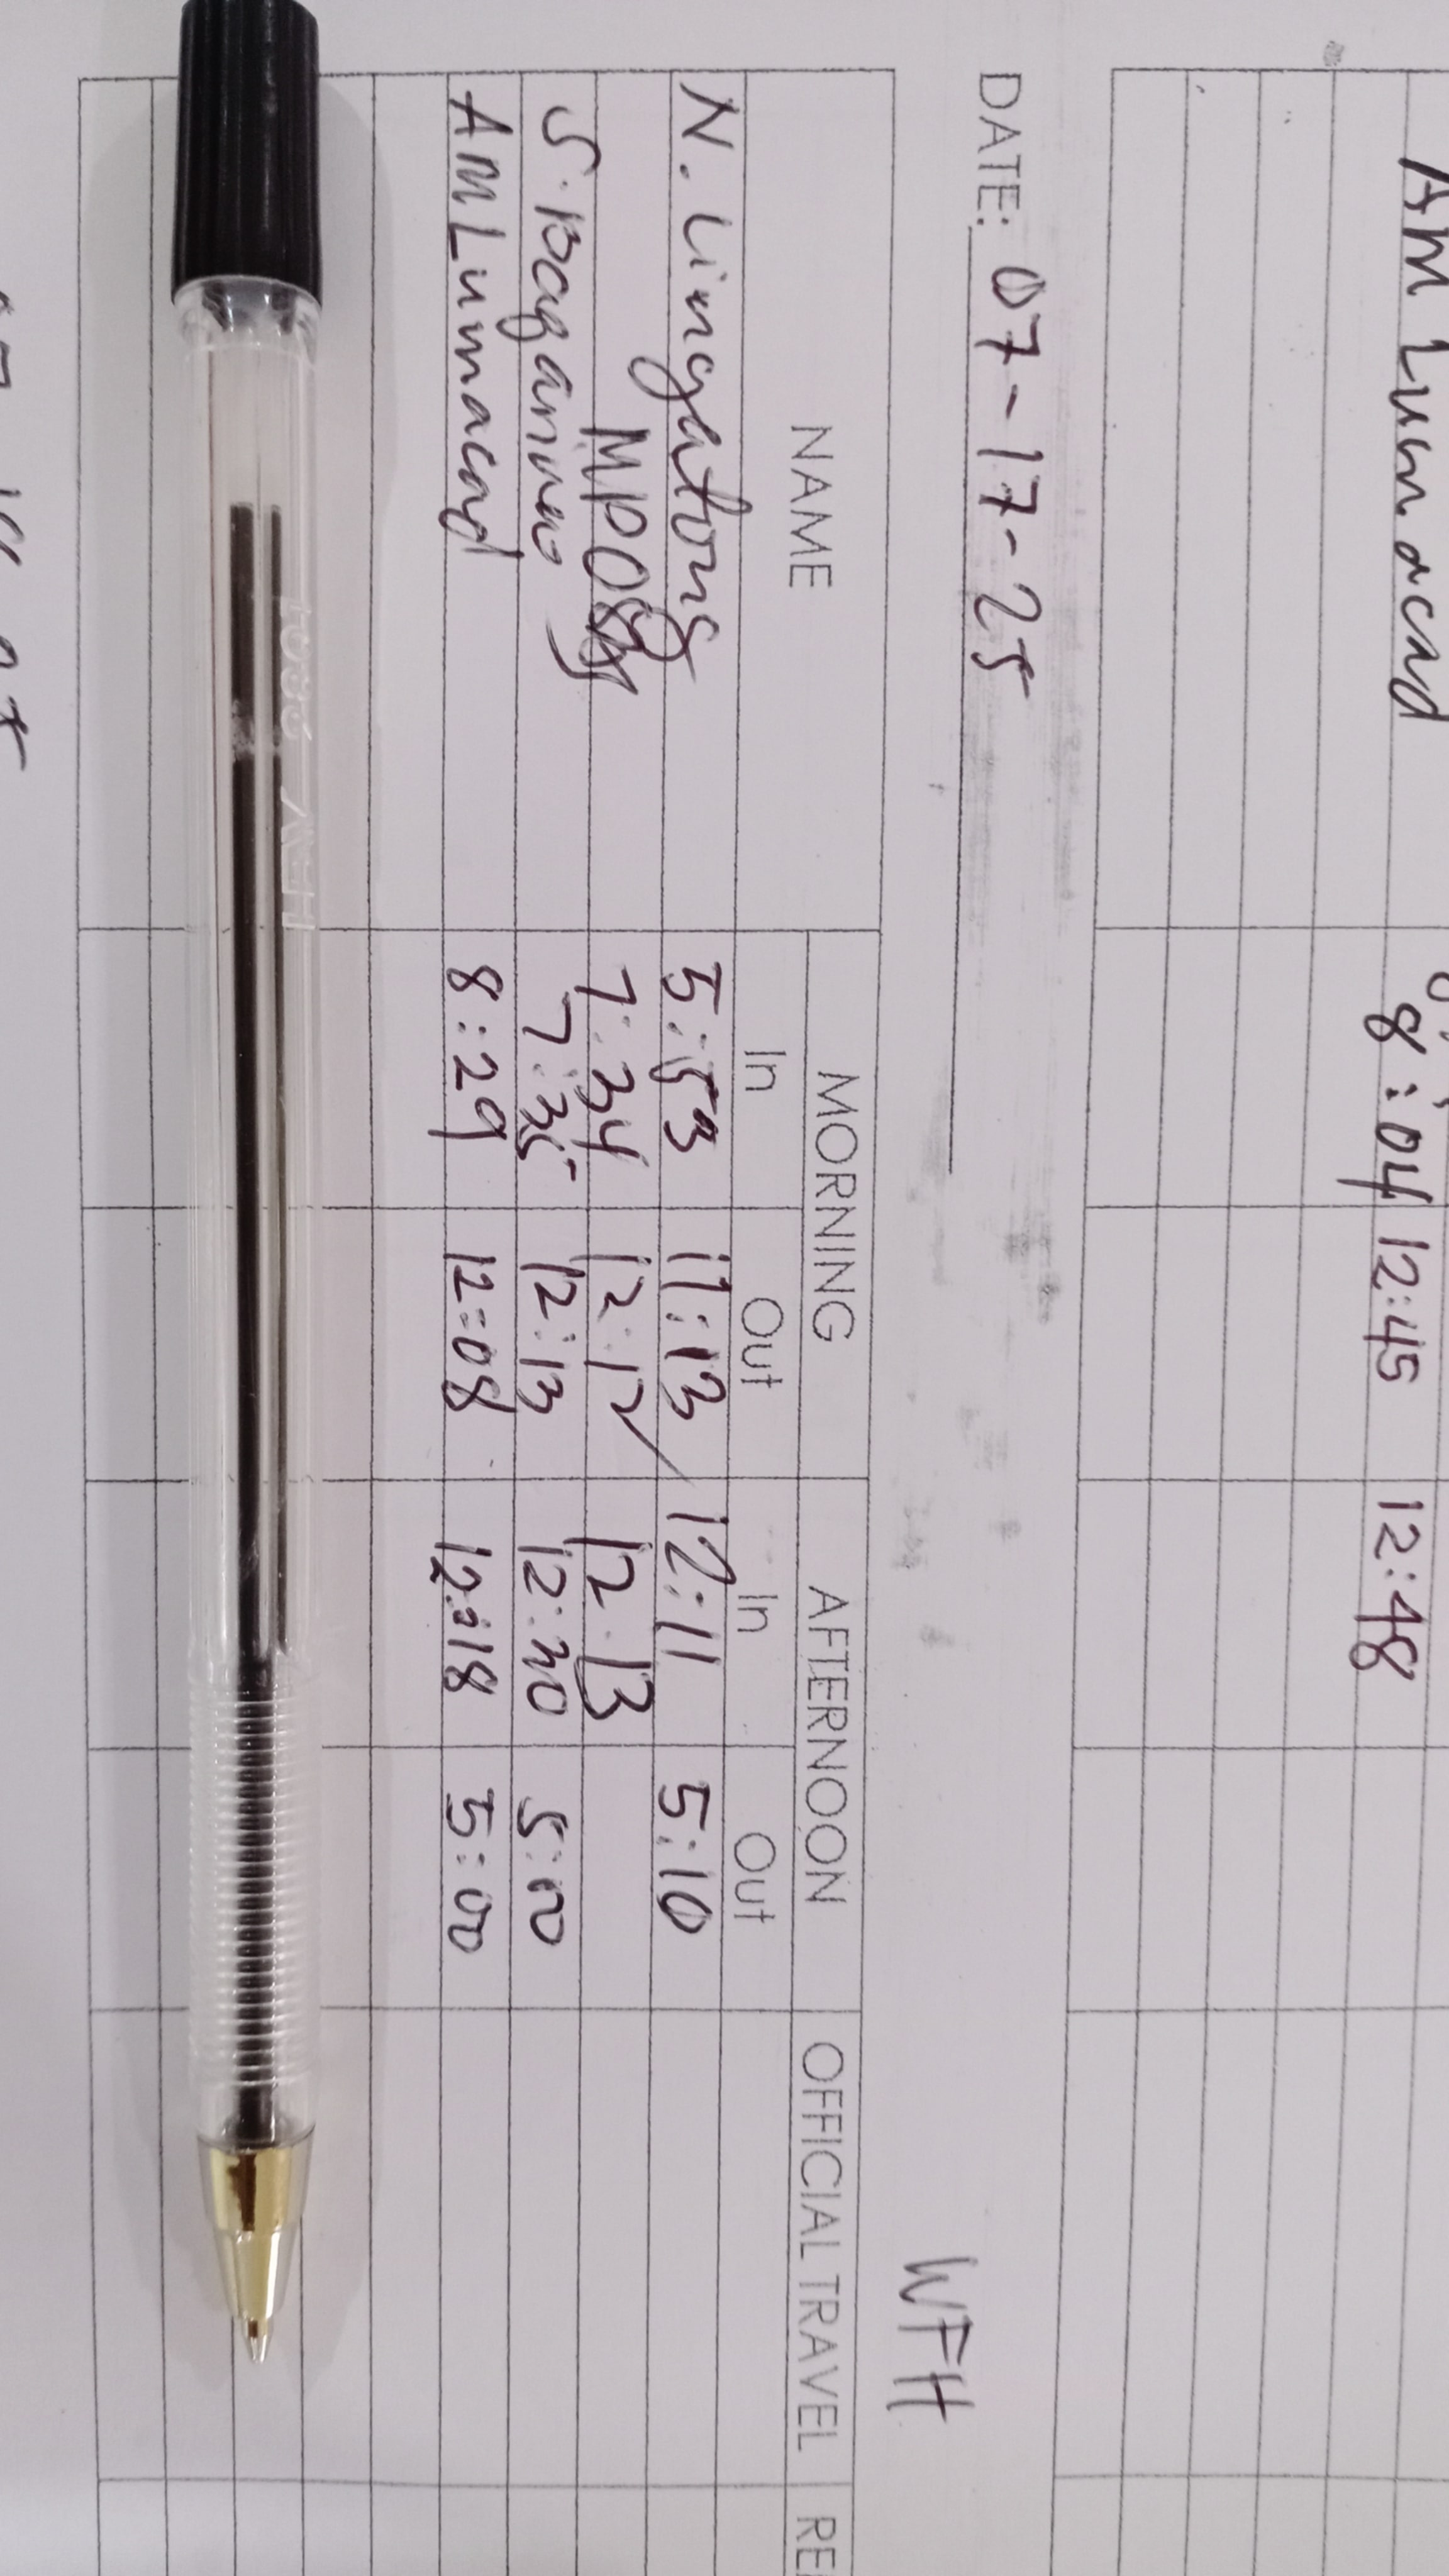 AM Lumacad 8:04 12:45 12:48
DATE: 07-17-25 WFH
NAME MORNING AFTERNOON OFFICIAL TRAVEL
In Out In Out
N. Lingatong 5:53 11:13 12:11 5:10
7:34 12:12 12:13
7:35 12:13 12:30 5:00
AM Lumacad 8:29 12:08 12:18 5:00